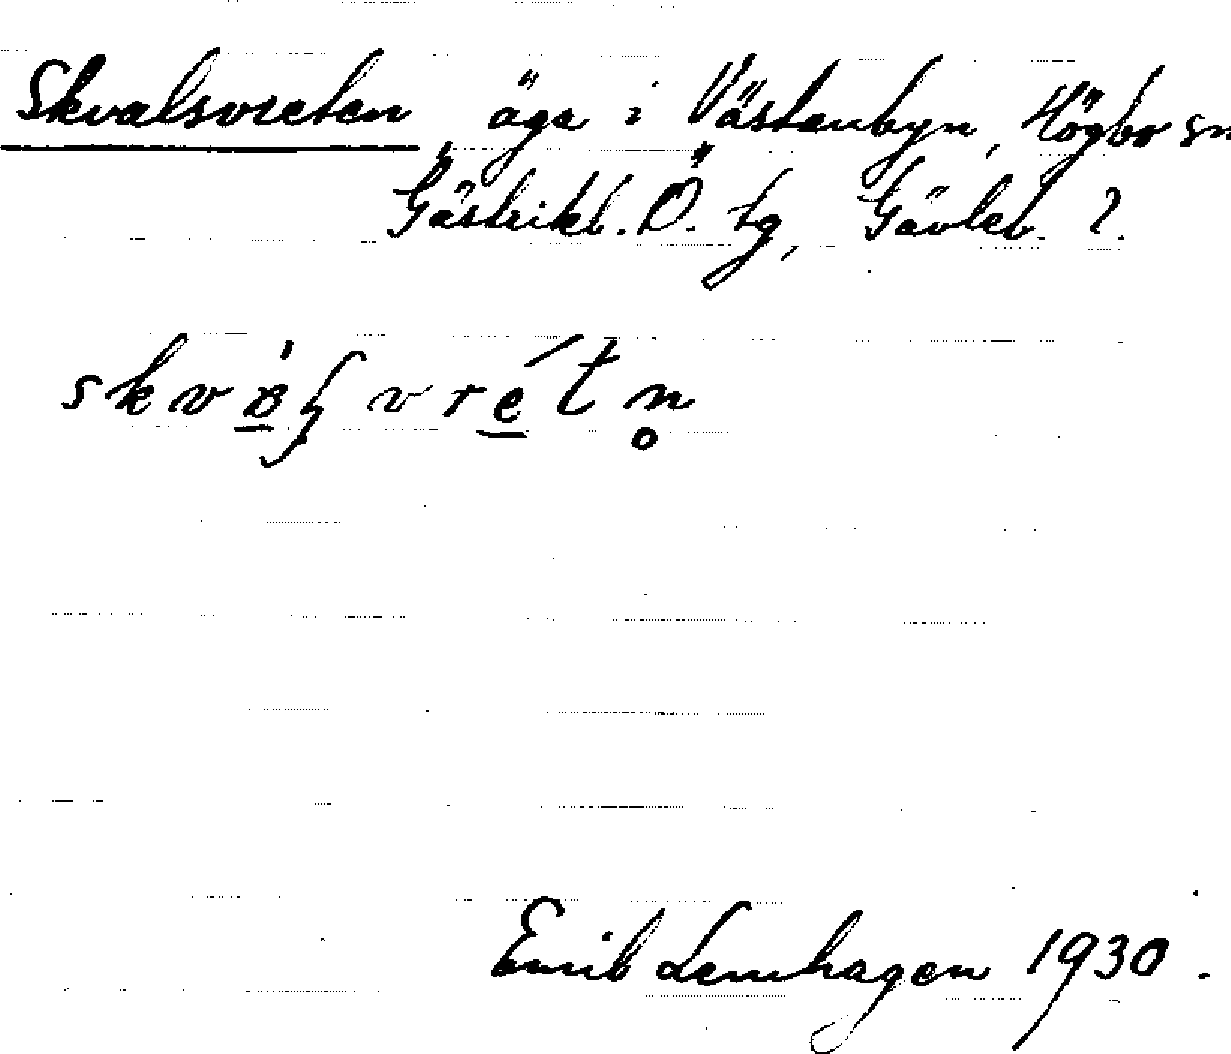 Skvalsvreten, äga i Västanbyn, Högbo sn
Gästrikl. Ö. tg, Gävleb. l.
Emil Lenhagen 1930.